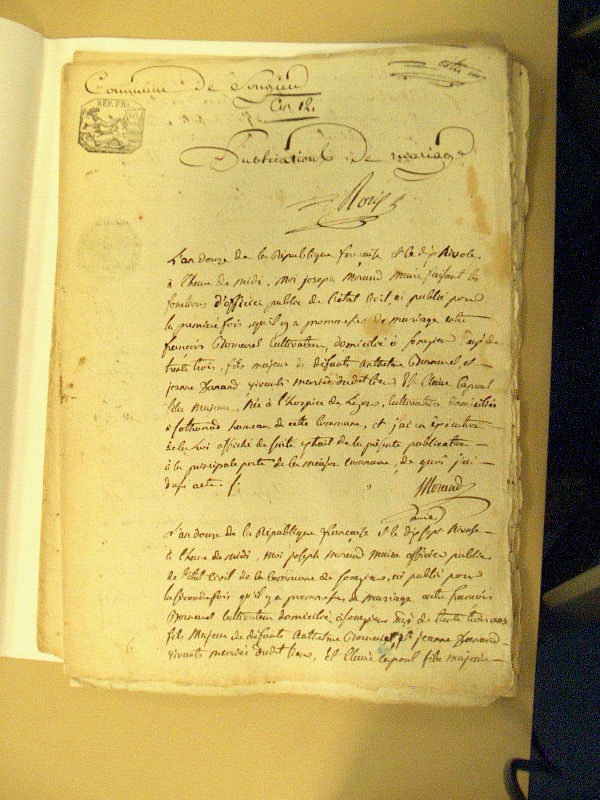 Commune de Songieu
An 12.
REP. FRA.
Publications de mariage
L'an douze de la République française et le dix Nivose
à l'heure de midi, moi joseph Morand Maire faisant les
fonctions d'officier public de l'état Civil, ai publié pour
la première fois qu'il y a promesses de mariage entre
françois Bornuel Cultivateur, domicilié à songieu, agé de
trente trois, fils majeur de défunts Anthelme Bornuel et
jeanne Durand vivants mariés dudit lieu, Et Claire
fille Majeure, Née à l'hospice de Cultivatrice domiciliée
à hameau de cette Commune, et j'ai en exécution
de la loi affiché de suite extrait de la présente publication
à la principale porte de la maison commune, de quoi j'ai
dressé acte.
Morand
L'an douze de la République française et le dix sept Nivose
à l'heure de midi, moi joseph morand maire officier public
de l'état Civil de la Commune de songieu, ai publié pour
la seconde fois qu'il y a promesses de mariage entre françois
Bornuel Cultivateur domicilié à songieu agé de trente trois ans
fils Majeur de défunts Anthelme Bornuel, et jeanne Durand
vivants mariés dudit lieu, Et Claire fille majeure